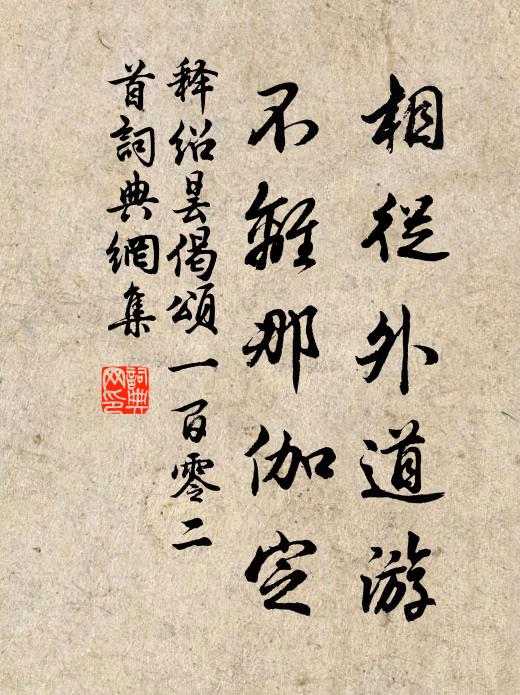 相從外道游
不離那伽定
释绍昙偈頌一百零二
首詞典網集
詞典
网印